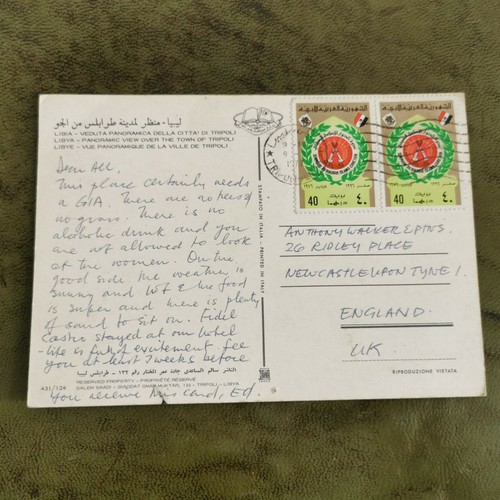 ليبياء منظر لمدينة طرابلس من الجو
LIBIA - VEDUTA PANORAMICA DELLA CITTA' DI TRIPOLI
LIBYA - PANORAMIC VIEW OVER THE TOWN OF TRIPOLI
LIBYE - VUE PANORAMIQUE DE LA VILLE DE TRIPOLI.
Dear All.
This place certainly needs
a GIA. There are no trees
no grass. There is no
alcoholic drink and you
are not allowed to look
at the women. On the
good side the weather is
sunny and hot & the food
is super and there is plenty
of sand to sit on. Fidel
Castro stayed at our hotel
- life is full of excitement
you at least 2 weeks before
you receive this card, Ed.
431/124
RESERVED PROPERTY - PROPRIÉTÉ RÉSERVÉ
TRIPOLI - LIBYA
STAMPATO IN ITALIA - PRINTED IN ITALY
الجمهورية العربية الليبية
40
٤٠
الجمهورية العربية الليبية
40
٤٠
ANTHONY WALKER & PTNS.
26 RIDLEY PLACE
NEWCASTLE UPON TYNE 1.
ENGLAND.
UK
RIPRODUZIONE VIETATA